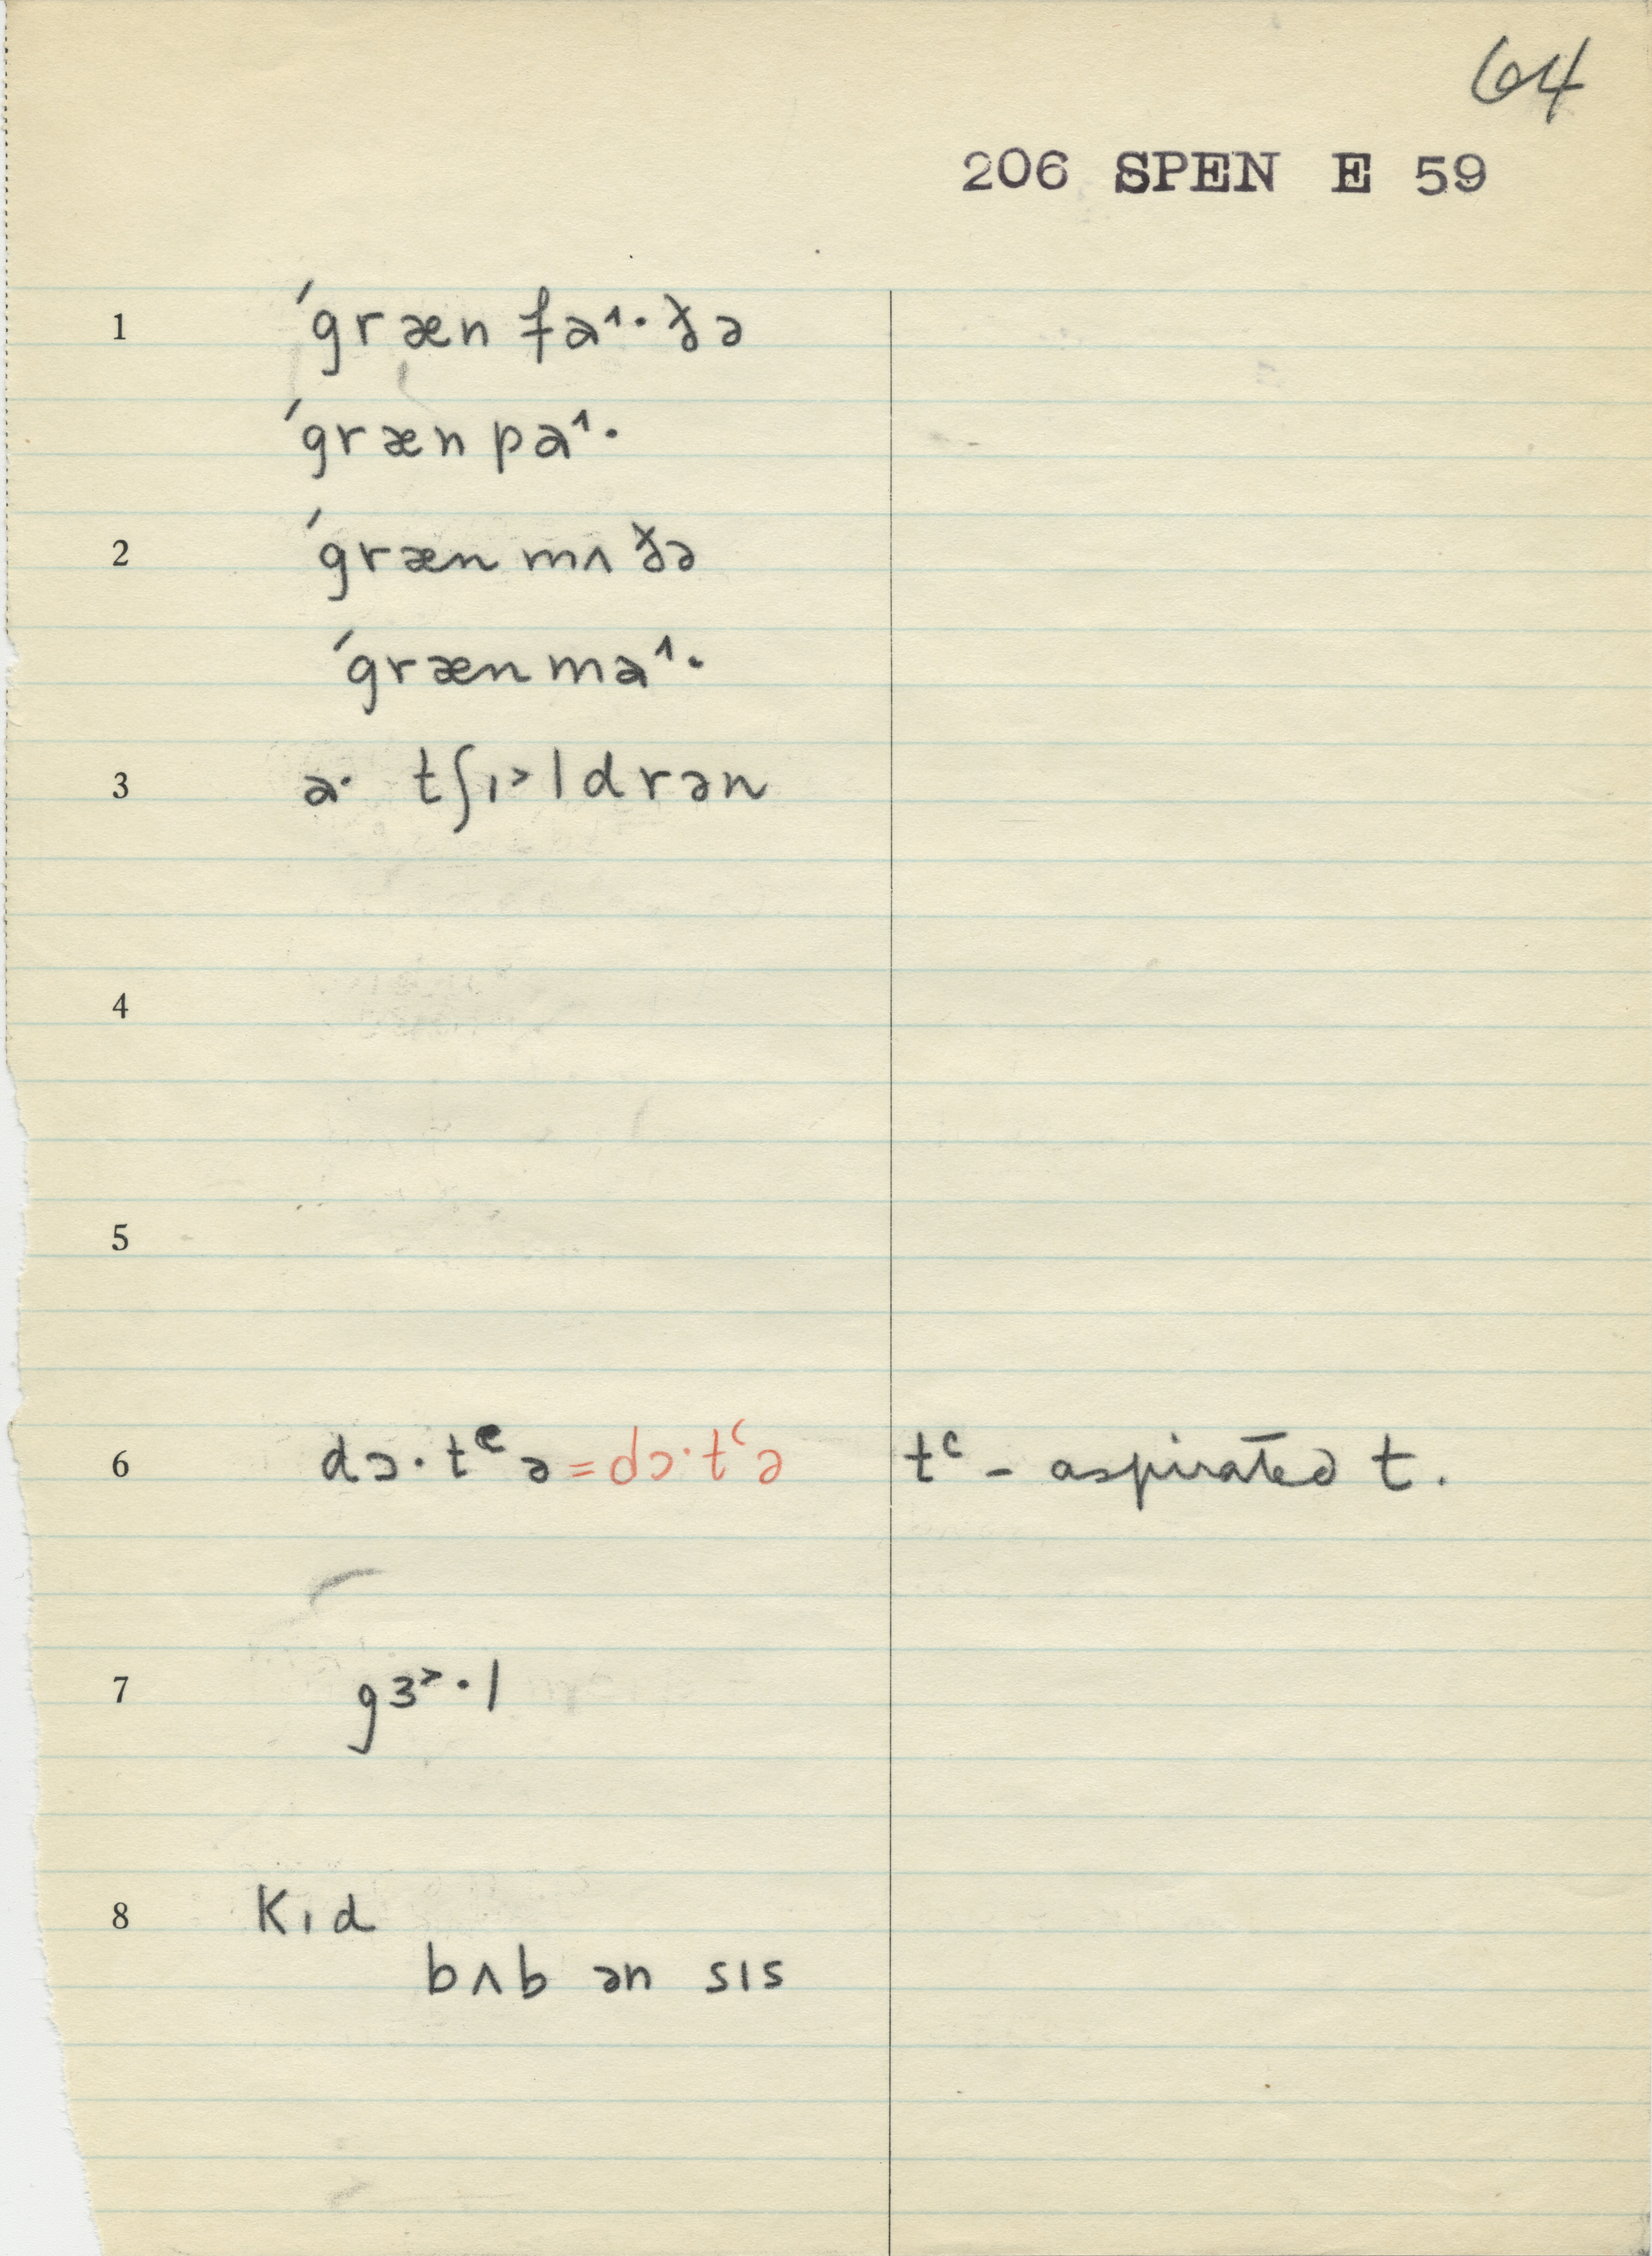 64
206 SPEN E 59
1 ˊgræn fa˄·ðə
ˊgræn pa˄·
2 ˊgræn mʌ ðə
ˊgræn ma˄·
3 a· tʃɪ˃ldrən
4
5
6 dɔ·tᶜə = dɔ·tʿə tᶜ - aspirated t.
7 gɜ˃·l
8 Kɪd
bʌb ən sɪs